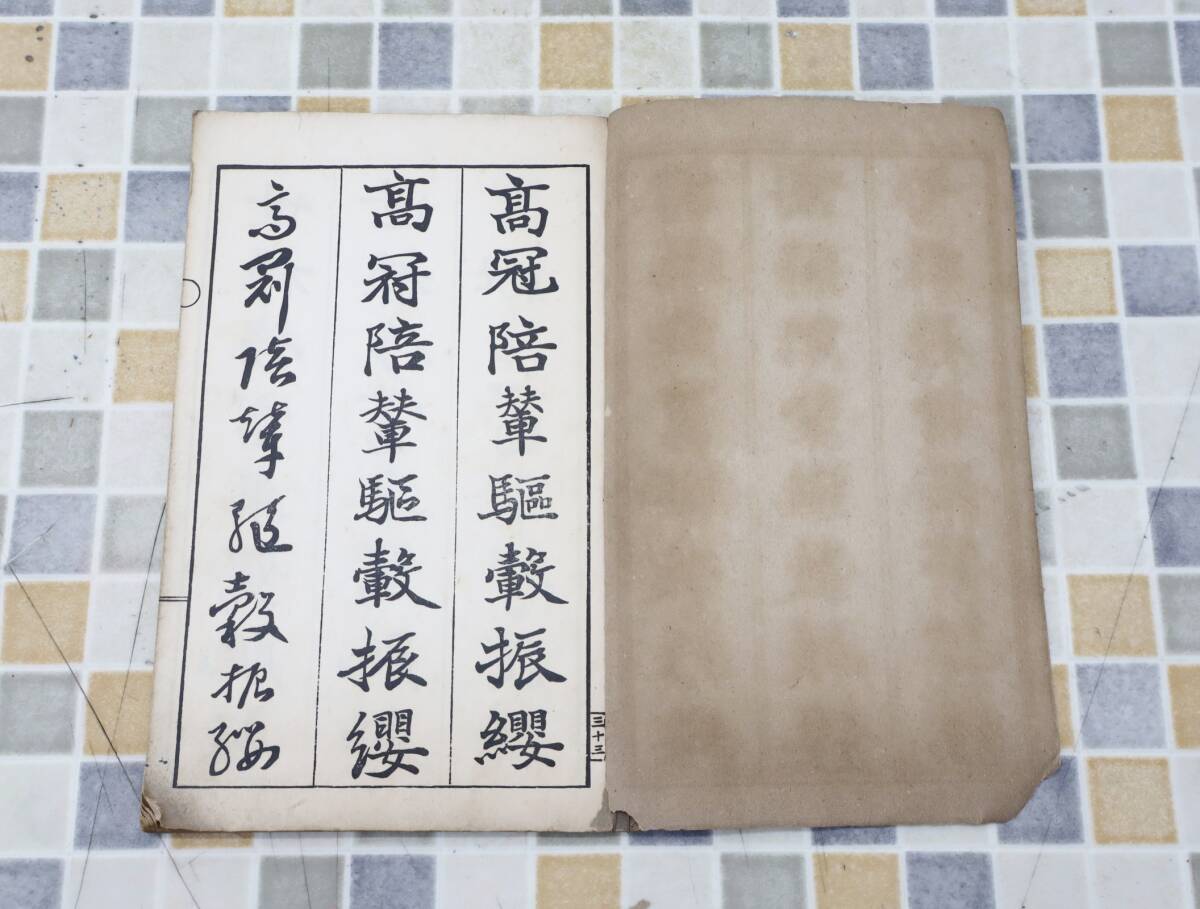 髙冠陪輦驅轂振纓
髙冠陪輦驅轂振纓
高冠陪輦驅轂振纓
三十三